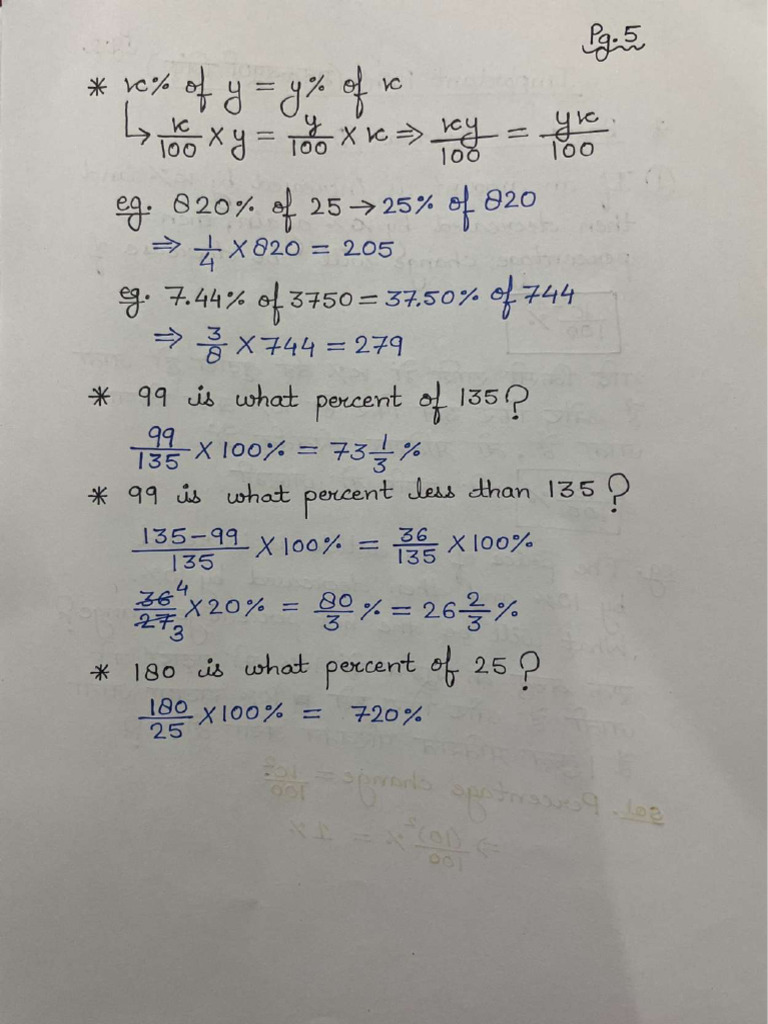 Pg. 5
* x% of y = y% of x
↳ x/100 × y = y/100 × x ⇒ xy/100 = yx/100
eg. 820% of 25 → 25% of 820
⇒ 1/4 × 820 = 205
eg. 7.44% of 3750 = 37.50% of 744
⇒ 3/8 × 744 = 279
* 99 is what percent of 135?
99/135 × 100% = 73 1/3 %
* 99 is what percent less than 135?
135-99/135 × 100% = 36/135 × 100%
36 4/27 3 × 20% = 80/3 % = 26 2/3 %
* 180 is what percent of 25?
180/25 × 100% = 720%
sol. Percentage change = 10²/100
⇒ (10)²/100 % = 1%